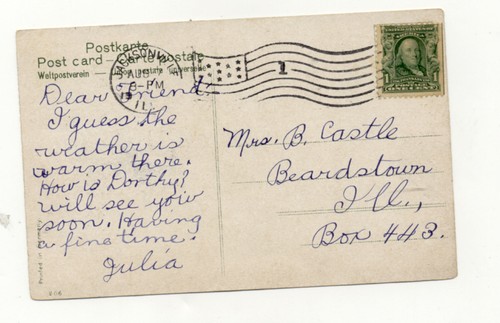 Postkarte
Post card
Weltpostverein
JACKSONVILLE
AUG
8-PM
ILL
1
Dear Friend:
I guess the
weather is
warm there.
How is Dorthy?
will see you
soon. Having
a fine time.
Julia
Mrs. B. Castle
Beardstown
Ill.,
Box 443.
1
1
ONE CENT
Printed in